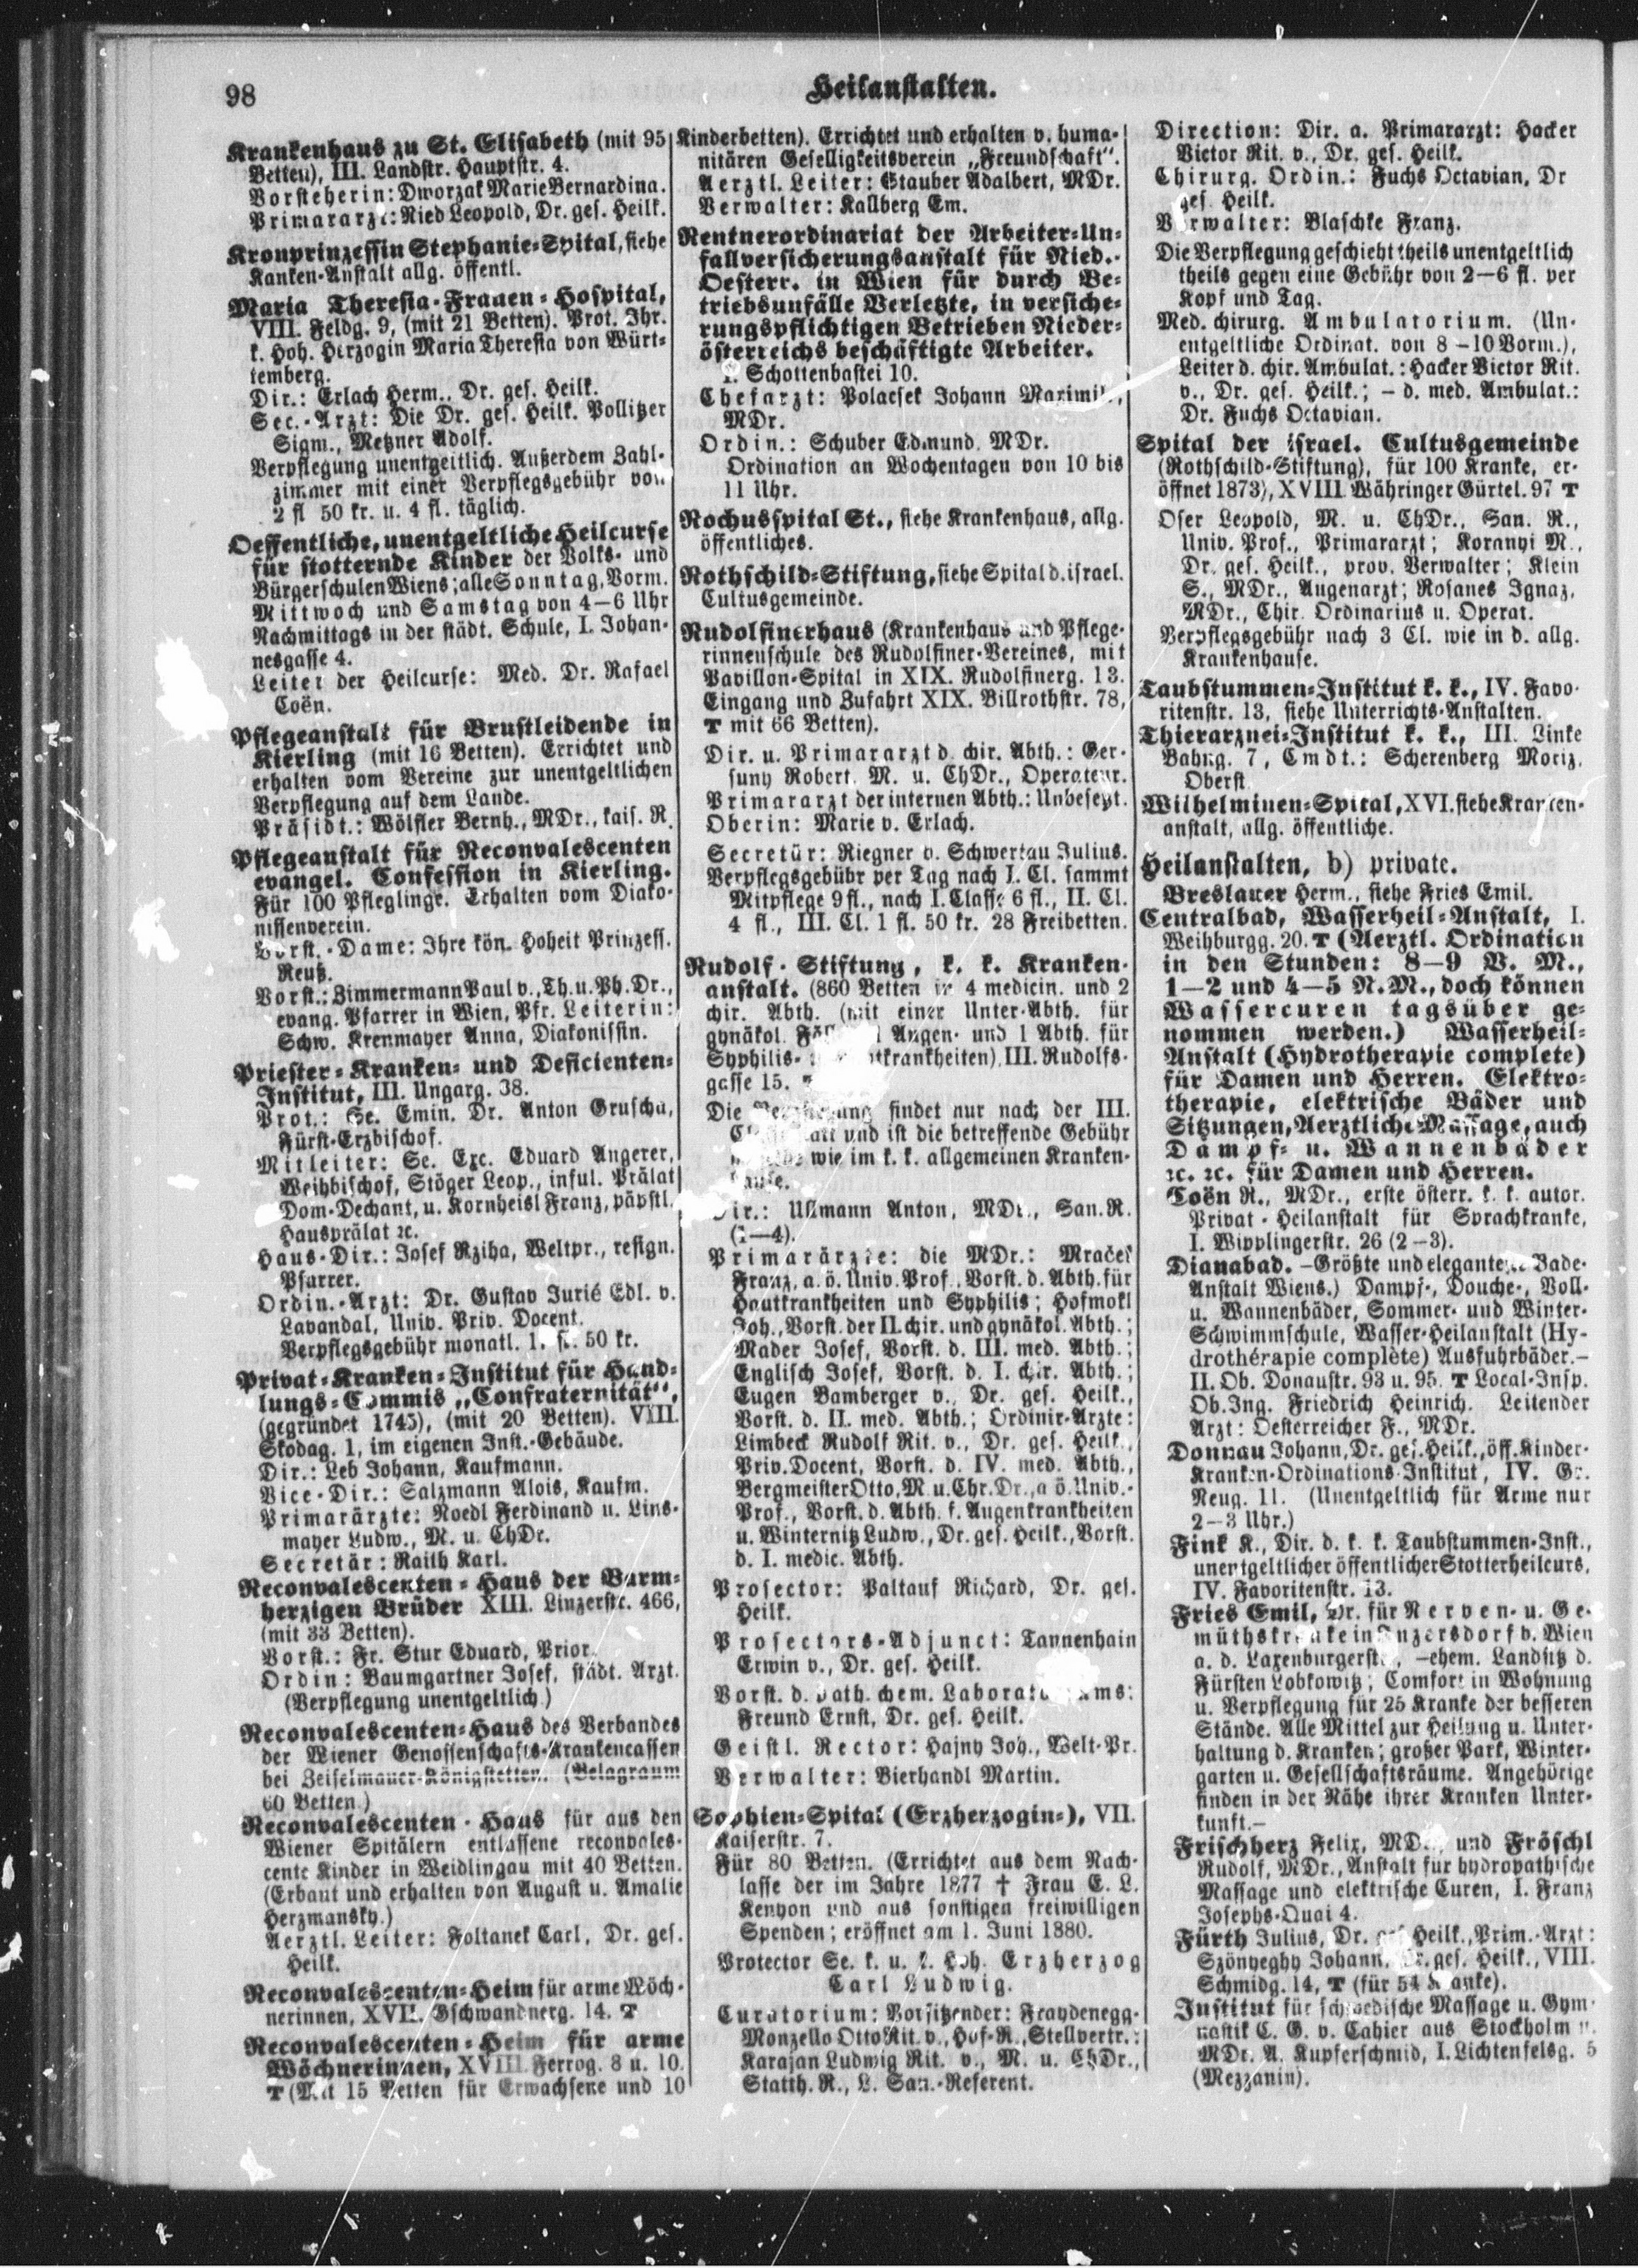 98
Heilanstalten.
Krankenhaus zu St. Elisabeth (mit 95
Betten), III. Landstr. Hauptstr. 4.
Vorsteherin: Dworzak Marie Bernardina.
Primararzt: Ried Leopold, Dr. ges. Heilk.
Kronprinzessin Stephanie-Spital, siehe
Kanken-Anstalt allg. öffentl.
Maria Theresia-Frauen-Hospital,
VIII. Feldg. 9, (mit 21 Betten). Prot. Ihr.
k. Hoh. Herzogin Maria Theresia von Würt-
temberg.
Dir.: Erlach Herm., Dr. ges. Heilk.
Sec.-Arzt: Die Dr. ges. Heilk. Pollitzer
Sigm., Metzner Adolf.
Verpflegung unentgeltlich. Außerdem Zahl-
zimmer mit einer Verpflegsgebühr von
2 fl 50 kr. u. 4 fl. täglich.
Oeffentliche, unentgeltliche Heilcurse
für stotternde Kinder der Volks- und
Bürgerschulen Wiens; alle Sonntag, Vorm.
Mittwoch und Samstag von 4—6 Uhr
Nachmittags in der städt. Schule, I. Johan-
nesgasse 4.
Leiter der Heilcurse: Med. Dr. Rafael
Coën.
Pflegeanstalt für Brustleidende in
Kierling (mit 16 Betten). Errichtet und
erhalten vom Vereine zur unentgeltlichen
Verpflegung auf dem Lande.
Präsidt.: Wölfler Bernh., MDr., kais. R.
Pflegeanstalt für Reconvalescenten
evangel. Confession in Kierling.
Für 100 Pfleglinge. Erhalten vom Diako-
nissenverein.
Vorst.-Dame: Ihre kön. Hoheit Prinzess.
Reuß.
Vorst.: Zimmermann Paul v., Th. u. Ph. Dr.,
evang. Pfarrer in Wien, Pfr. Leiterin:
Schw. Krenmayer Anna, Diakonissin.
Priester-Kranken- und Deficienten-
Institut, III. Ungarg. 38.
Prot.: Se. Emin. Dr. Anton Gruscha,
Fürst-Erzbischof.
Mitleiter: Se. Exc. Eduard Angerer,
Weihbischof, Stöger Leop., inful. Prälat
Dom-Dechant, u. Kornheisl Franz, päpstl.
Hausprälat ꝛc.
Haus-Dir.: Josef Rziha, Weltpr., resign.
Pfarrer.
Ordin.-Arzt: Dr. Gustav Jurié Edl. v.
Lavandal, Univ. Priv. Docent.
Verpflegsgebühr monatl. 50 kr.
Privat-Kranken-Institut für Hand-
lungs-Commis „Confraternität“,
(gegründet 1745), (mit 20 Betten). VIII.
Skodag. 1, im eigenen Inst.-Gebäude.
Dir.: Leb Johann, Kaufmann.
Vice-Dir.: Salzmann Alois, Kaufm.
Primarärzte: Noedl Ferdinand u. Lins-
mayer Ludw., M. u. ChDr.
Secretär: Raith Karl.
Reconvalescenten-Haus der Barm-
herzigen Brüder XIII. Linzerstr. 466,
(mit 33 Betten).
Vorst.: Fr. Stur Eduard, Prior.
Ordin: Baumgartner Josef, städt. Arzt.
(Verpflegung unentgeltlich.)
Reconvalescenten-Haus des Verbandes
der Wiener Genossenschafts-Krankencassen
bei Zeiselmauer-Königstetten. (Belagraum
60 Betten.)
Reconvalescenten-Haus für aus den
Wiener Spitälern entlassene reconvales-
cente Kinder in Weidlingau mit 40 Betten.
(Erbaut und erhalten von August u. Amalie
Herzmansky.)
Aerztl. Leiter: Foltanek Carl, Dr. ges.
Heilk.
Reconvalescenten-Heim für arme Wöch-
nerinnen, XVII. Gschwandnerg. 14. T
Reconvalescenten-Heim für arme
Wöchnerinnen, XVIII. Ferrog. 8 u. 10.
T (Mit 15 Betten für Erwachsene und 10
Kinderbetten). Errichtet und erhalten v. huma-
nitären Geselligkeitsverein „Freundschaft“.
Aerztl. Leiter: Stauber Adalbert, MDr.
Verwalter: Kallberg Em.
Rentnerordinariat der Arbeiter-Un-
fallversicherungsanstalt für Nied.-
Oesterr. in Wien für durch Be-
triebsunfälle Verletzte, in versiche-
rungspflichtigen Betrieben Nieder-
österreichs beschäftigte Arbeiter.
I. Schottenbastei 10.
Chefarzt: Polacsek Johann Maximil.,
MDr.
Ordin.: Schuber Edmund, MDr.
Ordination an Wochentagen von 10 bis
11 Uhr.
Rochusspital St., siehe Krankenhaus, allg.
öffentliches.
Rothschild-Stiftung, siehe Spital d. israel.
Cultusgemeinde.
Rudolfinerhaus (Krankenhaus und Pflege-
rinnenschule des Rudolfiner-Vereines, mit
Pavillon-Spital in XIX. Rudolfinerg. 13.
Eingang und Zufahrt XIX. Billrothstr. 78,
T mit 66 Betten).
Dir. u. Primararzt d. chir. Abth.: Ger-
suny Robert, M. u. ChDr., Operateur.
Primararzt der internen Abth.: Unbesetzt.
Oberin: Marie v. Erlach.
Secretär: Riegner v. Schwertau Julius.
Verpflegsgebühr per Tag nach I. Cl. sammt
Mitpflege 9 fl., nach I. Classe 6 fl., II. Cl.
4 fl., III. Cl. 1 fl. 50 kr. 28 Freibetten.
Rudolf-Stiftung, k. k. Kranken-
anstalt. (860 Betten in 4 medicin. und 2
chir. Abth. (mit einer Unter-Abth. für
gynäkol. 1 Augen- und 1 Abth. für
Syphilis- III. Rudolfs-
gasse 15.
Die findet nur nach der III.
und ist die betreffende Gebühr
wie im k. k. allgemeinen Kranken-
hause.
Dir.: Ullmann Anton, MDr., San. R.
(2—4).
Primarärzte: die MDr.: Mraček
Franz, a. ö. Univ. Prof., Vorst. d. Abth. für
Hautkrankheiten und Syphilis; Hofmokl
Joh., Vorst. der II. chir. und gynäkol. Abth.;
Mader Josef, Vorst. d. III. med. Abth.;
Englisch Josef, Vorst. d. I. chir. Abth.;
Eugen Bamberger v., Dr. ges. Heilk.,
Vorst. d. II. med. Abth.; Ordinir-Arzte:
Limbeck Rudolf Rit. v., Dr. ges. Heilk.,
Priv. Docent, Vorst. d. IV. med. Abth.,
Bergmeister Otto, M. u. Chr. Dr., a ö. Univ.-
Prof., Vorst. d. Abth. f. Augenkrankheiten
u. Winternitz Ludw., Dr. ges. Heilk., Vorst.
d. I. medic. Abth.
Prosector: Paltauf Richard, Dr. ges.
Heilk.
Prosectors-Adjunct: Tannenhain
Erwin v., Dr. ges. Heilk.
Vorst. d. path. chem. Laboratoriums:
Freund Ernst, Dr. ges. Heilk.
Geistl. Rector: Hajny Joh., Welt-Pr.
Verwalter: Bierhandl Martin.
Sophien-Spital (Erzherzogin-), VII.
Kaiserstr. 7.
Für 80 Betten. (Errichtet aus dem Nach-
lasse der im Jahre 1877 † Frau E. L.
Kenyon und aus sonstigen freiwilligen
Spenden; eröffnet am 1. Juni 1880.
Protector Se. k. u. k. Hoh. Erzherzog
Carl Ludwig.
Curatorium: Vorsitzender: Fraydenegg-
Monzello Otto Rit. v., Hof-R., Stellvertr.:
Karajan Ludwig Rit. v., M. u. ChDr.,
Statth. R., L. San.-Referent.
Direction: Dir. a. Primararzt: Hacker
Victor Rit. v., Dr. ges. Heilk.
Chirurg. Ordin.: Fuchs Octavian, Dr
ges. Heilk.
Verwalter: Blaschke Franz.
Die Verpflegung geschieht theils unentgeltlich
theils gegen eine Gebühr von 2—6 fl. per
Kopf und Tag.
Med. chirurg. Ambulatorium. (Un-
entgeltliche Ordinat. von 8—10 Vorm.),
Leiter d. chir. Ambulat.: Hacker Victor Rit.
v., Dr. ges. Heilk.; — d. med. Ambulat.:
Dr. Fuchs Octavian.
Spital der israel. Cultusgemeinde
(Rothschild-Stiftung), für 100 Kranke, er-
öffnet 1873), XVIII. Währinger Gürtel. 97 T
Oser Leopold, M. u. ChDr., San. R.,
Univ. Prof., Primararzt; Koranyi M.,
Dr. ges. Heilk., prov. Verwalter; Klein
S., MDr., Augenarzt; Rosanes Ignaz,
MDr., Chir. Ordinarius u. Operat.
Verpflegsgebühr nach 3 Cl. wie in d. allg.
Krankenhause.
Taubstummen-Institut k. k., IV. Favo-
ritenstr. 13, siehe Unterrichts-Anstalten.
Thierarznei-Institut k. k., III. Linke
Bahng. 7, Cmdt.: Scherenberg Moriz,
Oberst.
Wilhelminen-Spital, XVI. siehe Kranken-
anstalt, allg. öffentliche.
Heilanstalten, b) private.
Breslauer Herm., siehe Fries Emil.
Centralbad, Wasserheil-Anstalt, I.
Weihburgg. 20. T (Aerztl. Ordination
in den Stunden: 8—9 V. M.,
1—2 und 4—5 N. M., doch können
Wassercuren tagsüber ge-
nommen werden.) Wasserheil-
Anstalt (Hydrotherapie complete)
für Damen und Herren. Elektro-
therapie, elektrische Bäder und
Sitzungen, Aerztliche Massage, auch
Dampf- u. Wannenbäder
ꝛc. ꝛc. für Damen und Herren.
Coën R., MDr., erste österr. k. k. autor.
Privat-Heilanstalt für Sprachkranke,
I. Wipplingerstr. 26 (2—3).
Dianabad. —Größte und eleganteste Bade-
Anstalt Wiens.) Dampf-, Douche-, Voll-
u. Wannenbäder, Sommer- und Winter-
Schwimmschule, Wasser-Heilanstalt (Hy-
drothérapie complète) Ausfuhrbäder.—
II. Ob. Donaustr. 93 u. 95. T Local-Insp.
Ob. Ing. Friedrich Heinrich. Leitender
Arzt: Oesterreicher F., MDr.
Donnau Johann, Dr. ges. Heilk., öff. Kinder-
Kranken-Ordinations-Institut, IV. Gr.
Neug. 11. (Unentgeltlich für Arme nur
2—3 Uhr.)
Fink K., Dir. d. k. k. Taubstummen-Inst.,
unentgeltlicher öffentlicher Stotterheilcurs,
IV. Favoritenstr. 13.
Fries Emil, Dr. für Nerven- u. Ge-
müthskranke in Inzersdorf b. Wien
a. d. Laxenburgerstr., —ehem. Landsitz d.
Fürsten Lobkowitz; Comfort in Wohnung
u. Verpflegung für 25 Kranke der besseren
Stände. Alle Mittel zur Heilung u. Unter-
haltung d. Kranken; großer Park, Winter-
garten u. Gesellschaftsräume. Angehörige
finden in der Nähe ihrer Kranken Unter-
kunft.—
Frischherz Felix, MDr., und Fröschl
Rudolf, MDr., Anstalt für hydropathische
Massage und elektrische Curen, I. Franz
Josephs-Quai 4.
Fürth Julius, Dr. ges. Heilk., Prim.-Arzt:
Szönyeghy Johann, Dr. ges. Heilk., VIII.
Schmidg. 14, T (für 54 Kranke).
Institut für schwedische Massage u. Gym-
nastik C. G. v. Cahier aus Stockholm u.
MDr. A. Kupferschmid, I. Lichtenfelsg. 5
(Mezzanin).